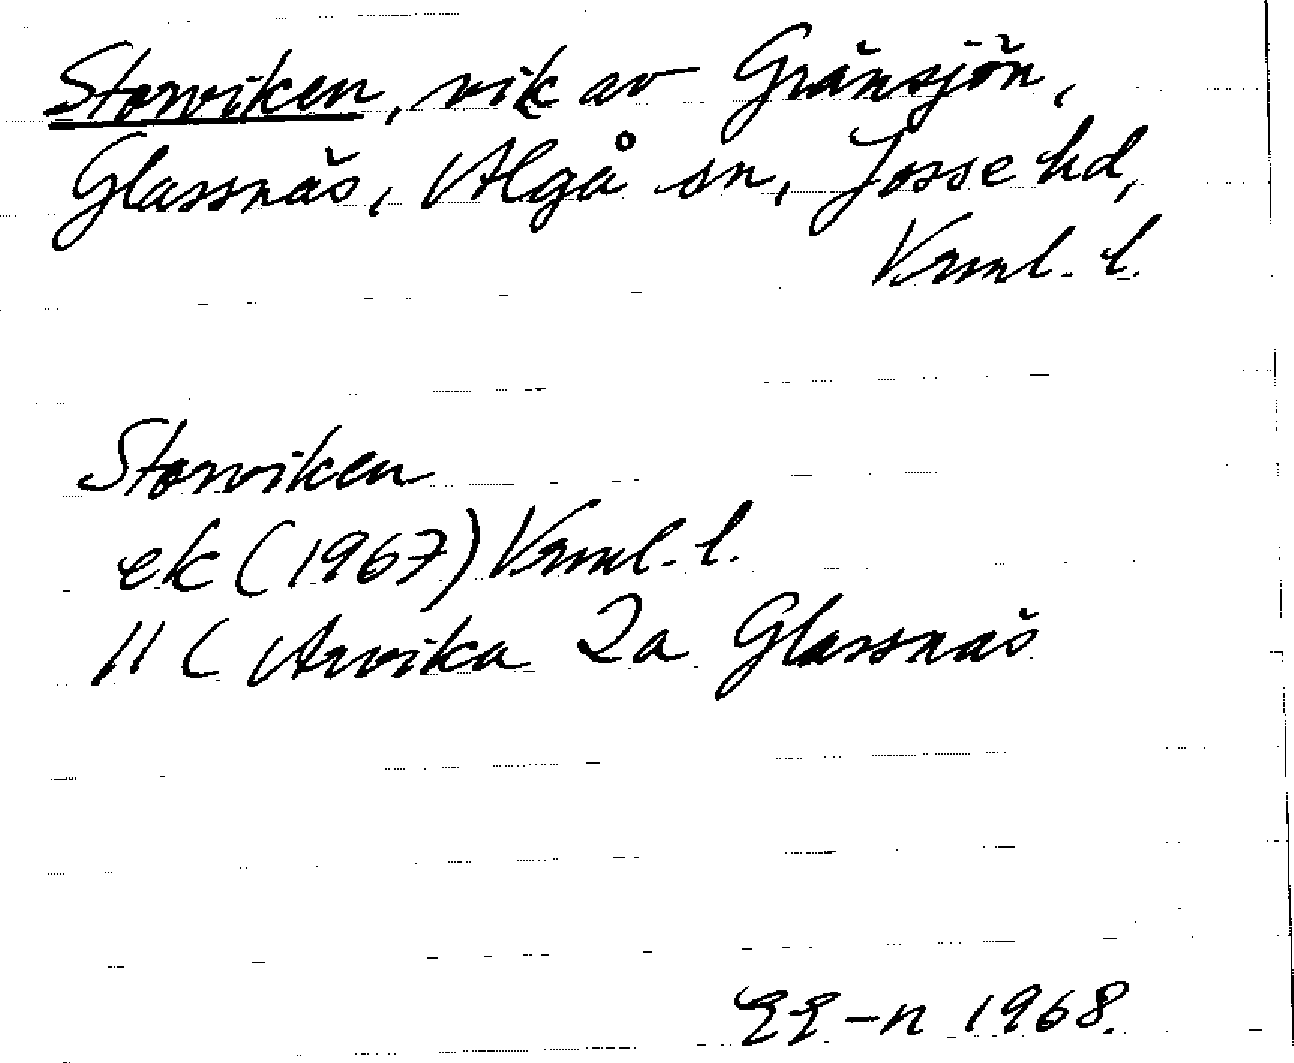 Storviken, vik av Gränsjön,
Glassnäs, Älgå sn, Jösse hd,
Vrml. l.
Storviken
ek (1967) Vrml. l.
11C Arvika 2a Glassnäs
-n 1968.